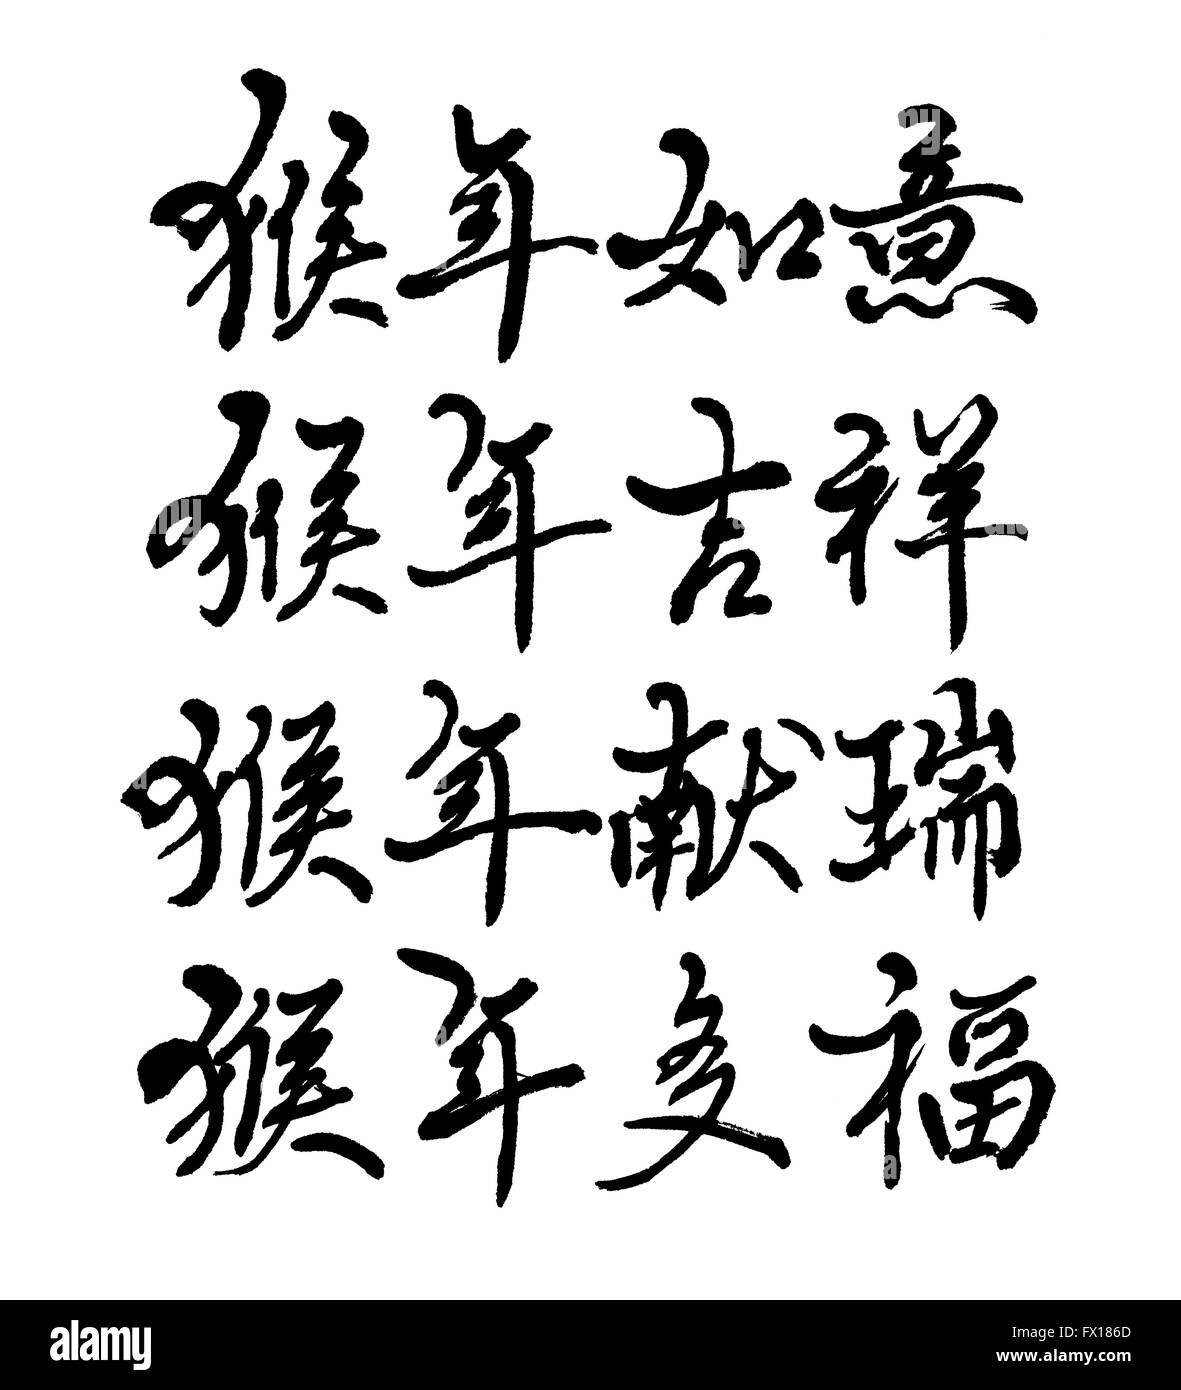 猴年如意
猴年吉祥
猴年献瑞
猴年多福
alamy
Image ID: FX186D
www.alamy.com